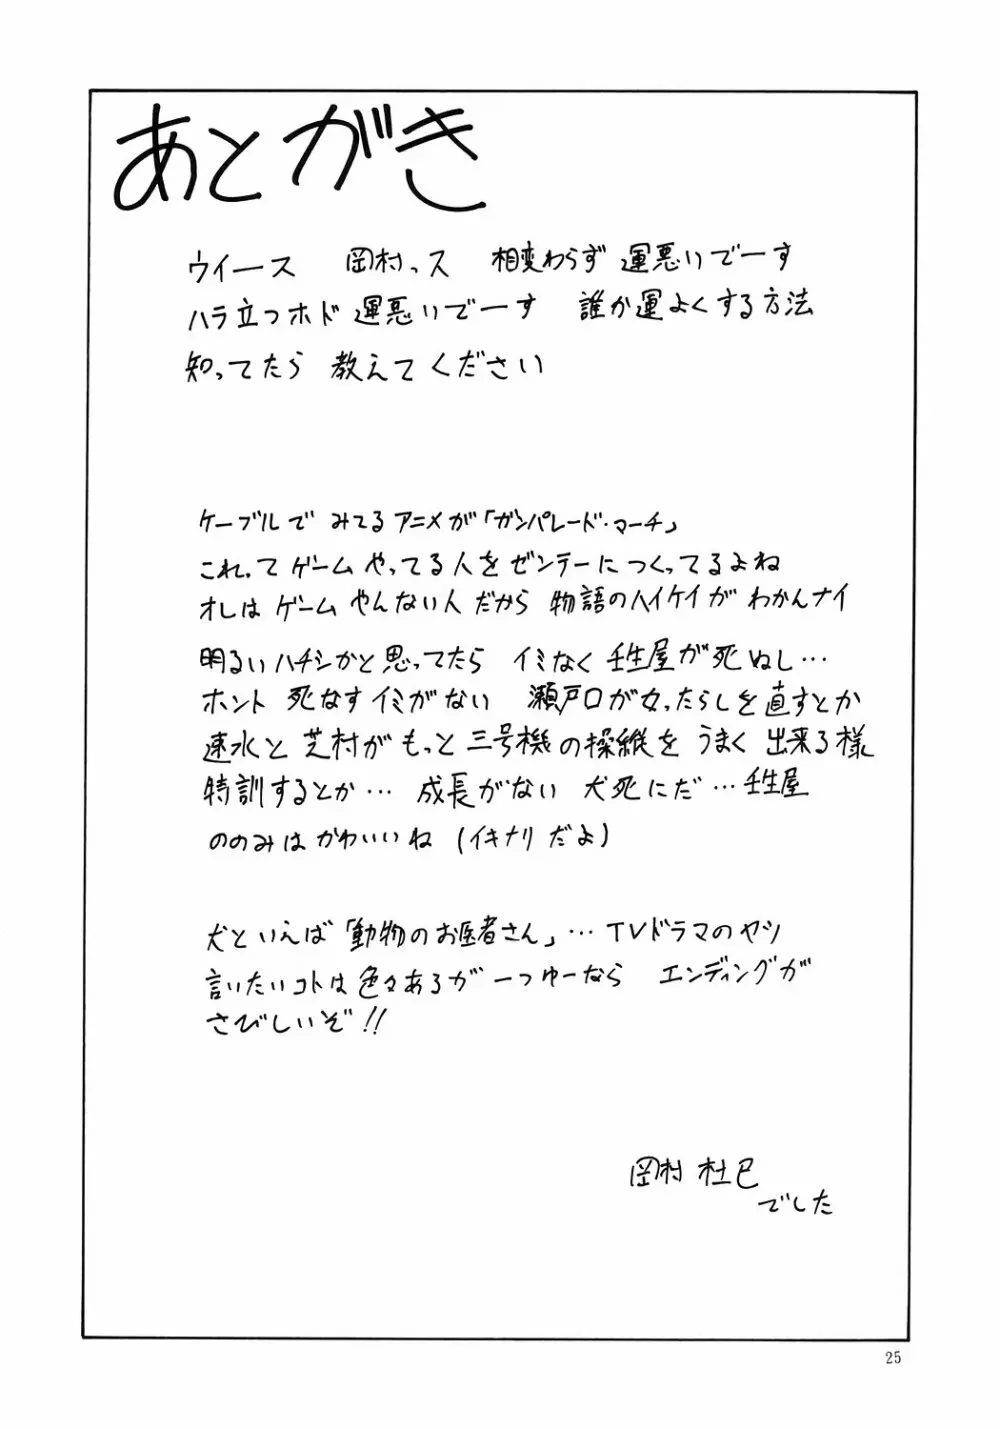 あとがき
ウイース 岡村っス 相変わらず運悪いでーす
ハラ立つホド運悪いでーす 誰か運よくする方法
知ってたら 教えてください
ケーブルで みてるアニメが「ガンパレード・マーチ」
これってゲームやってる人をゼンテーにつくってるよね
オレはゲームやんない人だから 物語のハイケイがわかんナイ
明るいハナシかと思ってたら イミなく壬生屋が死ぬし…
ホント 死なすイミがない 瀬戸口が女ったらしを直すとか
速水と芝村がもっと三号機の操縦をうまく出来る様
特訓するとか… 成長がない 犬死にだ…壬生屋
ののみはかわいいね (イキナリだよ)
犬といえば「動物のお医者さん」…TVドラマのヤツ
言いたいコトは色々あるが一つゆーなら エンディングが
さびしいぞ!!
岡村 杜巳
でした
25